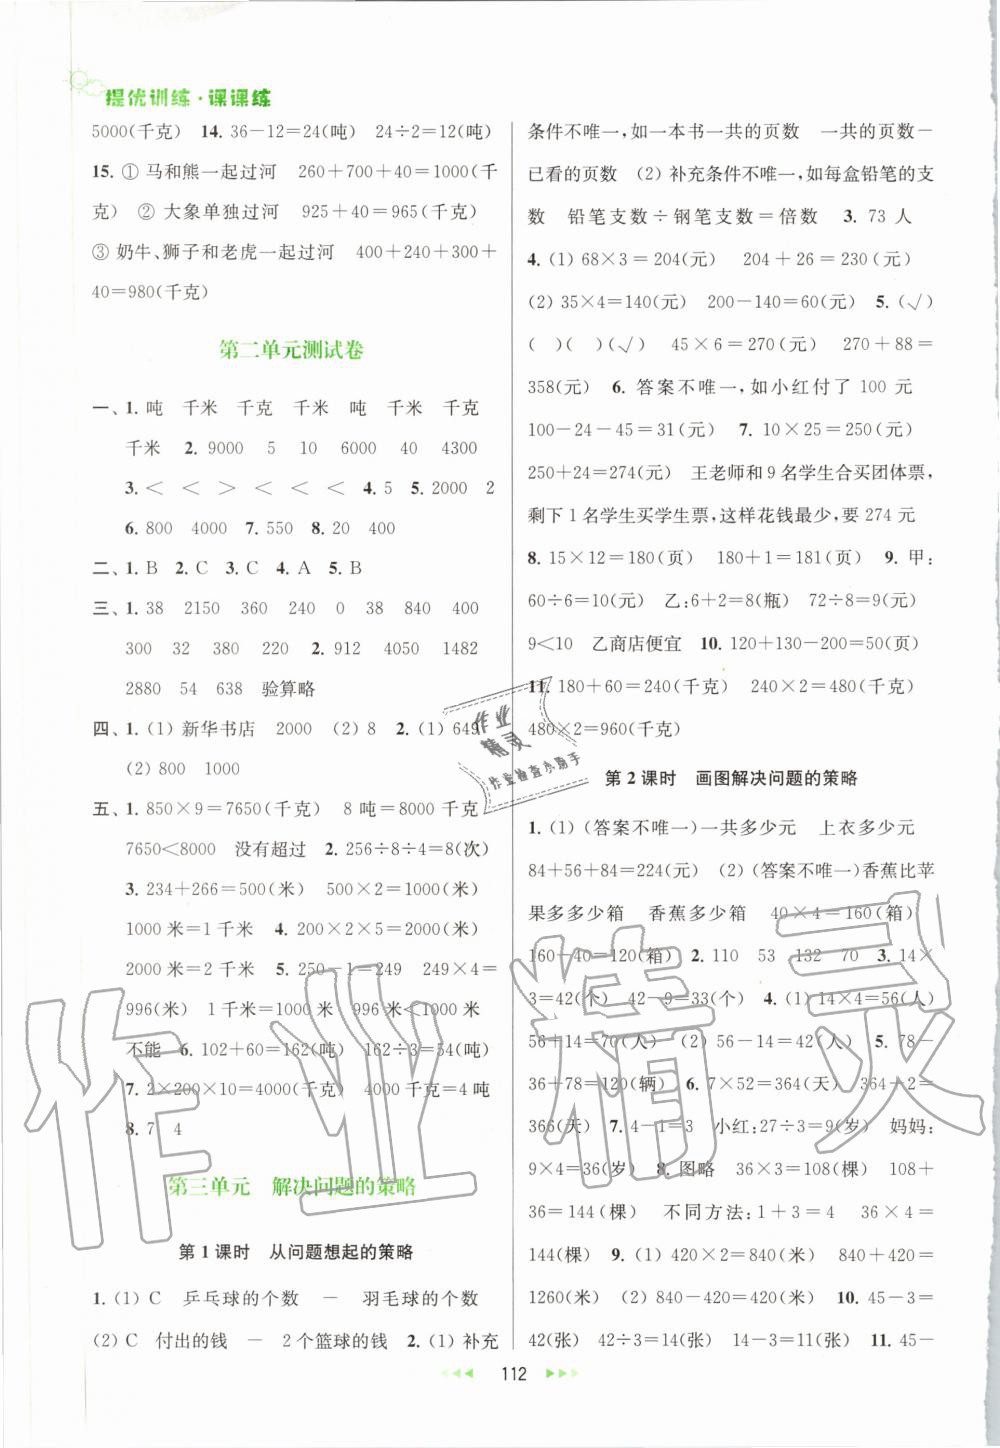 提优训练·课课练
5000(千克) 14. 36-12=24(吨) 24÷2=12(吨)
15. ① 马和熊一起过河 260+700+40=1000(千
克) ② 大象单独过河 925+40=965(千克)
③ 奶牛、狮子和老虎一起过河 400+240+300+
40=980(千克)
第二单元测试卷
一、1. 吨 千米 千克 千米 吨 千米 千克
千米 2. 9000 5 10 6000 40 4300
3. < < > < < < 4. 5 5. 2000 2
6. 800 4000 7. 550 8. 20 400
二、1. B 2. C 3. C 4. A 5. B
三、1. 38 2150 360 240 0 38 840 400
300 32 380 220 2. 912 4050 1482
2880 54 638 验算略
四、1. (1) 新华书店 2000 (2) 8 2. (1) 649
(2) 800 1000
五、1. 850×9=7650(千克) 8 吨=8000 千克
7650<8000 没有超过 2. 256÷8÷4=8(次)
3. 234+266=500(米) 500×2=1000(米)
1000 米=1 千米 4. 200×2×5=2000(米)
2000 米=2 千米 5. 250-1=249 249×4=
996(米) 1 千米=1000 米 996 米<1000 米
不能 6. 102+60=162(吨) 162÷3=54(吨)
7. 2×200×10=4000(千克) 4000 千克=4 吨
8. 7 4
第三单元 解决问题的策略
第 1 课时 从问题想起的策略
1. (1) C 乒乓球的个数 - 羽毛球的个数
(2) C 付出的钱 - 2 个篮球的钱 2. (1) 补充
条件不唯一,如一本书一共的页数 一共的页数-
已看的页数 (2) 补充条件不唯一,如每盒铅笔的支
数 铅笔支数÷钢笔支数=倍数 3. 73 人
4. (1) 68×3=204(元) 204+26=230(元)
(2) 35×4=140(元) 200-140=60(元) 5. (√)
( )( )(√) 45×6=270(元) 270+88=
358(元) 6. 答案不唯一,如小红付了 100 元
100-24-45=31(元) 7. 10×25=250(元)
250+24=274(元) 王老师和 9 名学生合买团体票,
剩下 1 名学生买学生票,这样花钱最少,要 274 元
8. 15×12=180(页) 180+1=181(页) 9. 甲:
60÷6=10(元) 乙:6+2=8(瓶) 72÷8=9(元)
9<10 乙商店便宜 10. 120+130-200=50(页)
11. 180+60=240(千克) 240×2=480(千克)
480×2=960(千克)
第 2 课时 画图解决问题的策略
1. (1) (答案不唯一)一共多少元 上衣多少元
84+56+84=224(元) (2) (答案不唯一)香蕉比苹
果多多少箱 香蕉多少箱 40×4=160(箱)
160-40=120(箱) 2. 110 53 132 70 3. 14×
3=42(个) 42-9=33(个) 4. (1) 14×4=56(人)
56+14=70(人) (2) 56-14=42(人) 5. 78-
36+78=120(辆) 6. 7×52=364(天) 364+2=
366(天) 7. 4-1=3 小红:27÷3=9(岁) 妈妈:
9×4=36(岁) 8. 图略 36×3=108(棵) 108+
36=144(棵) 不同方法:1+3=4 36×4=
144(棵) 9. (1) 420×2=840(米) 840+420=
1260(米) (2) 840-420=420(米) 10. 45-3=
42(张) 42÷3=14(张) 14-3=11(张) 11. 45-
112
作业
精灵
作业检查小助手
作业精灵